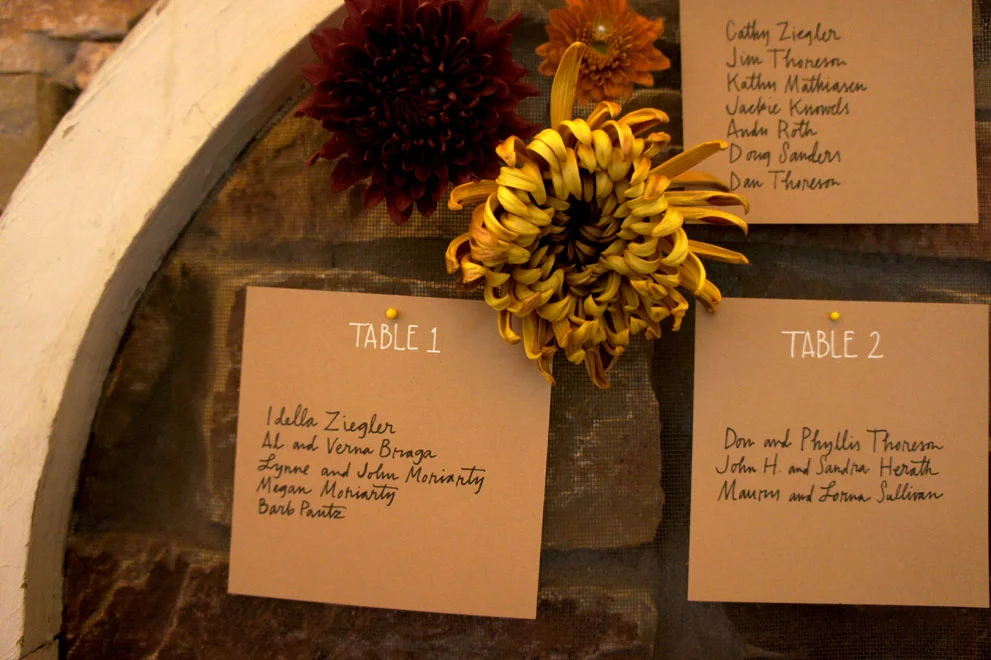 Cathy Ziegler
Jim Thoreson
Kathy Mathiasen
Jackie Knowels
Andy Roth
Doug Sanders
Dan Thoreson
TABLE 1
Idella Ziegler
Al and Verna Braga
Lynne and John Moriarty
Megan Moriarty
Barb Pautz
TABLE 2
Don and Phyllis Thoreson
John H. and Sandra Herath
and Lorna Sullivan